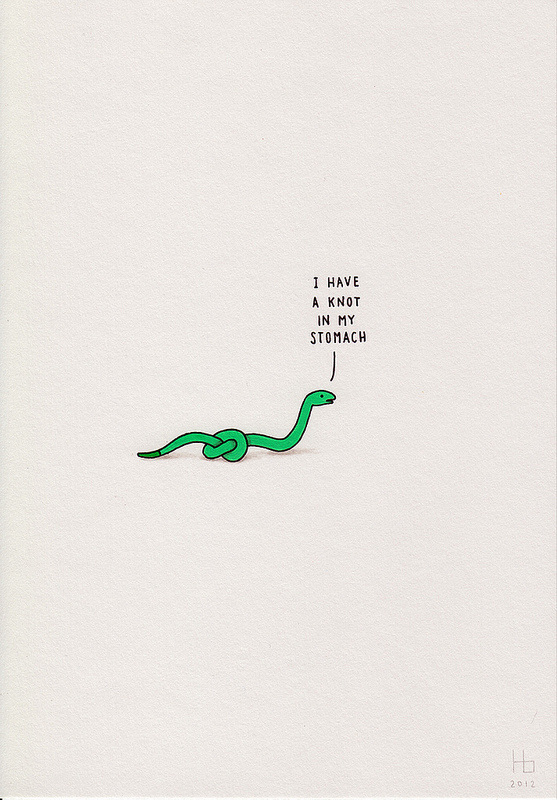 I HAVE
A KNOT
IN MY
STOMACH
Hb
2012